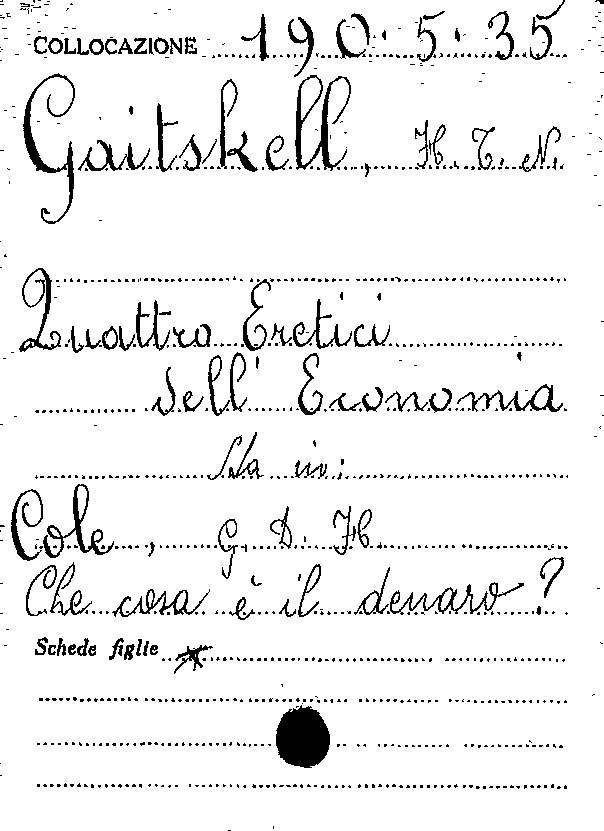 COLLOCAZIONE 190.5.35
Gaitskell, H. T. N.
Quattro Eretici
dell' Economia
Sta in:
Cole, G. D. H.
Che cosa è il denaro?
Schede figlie